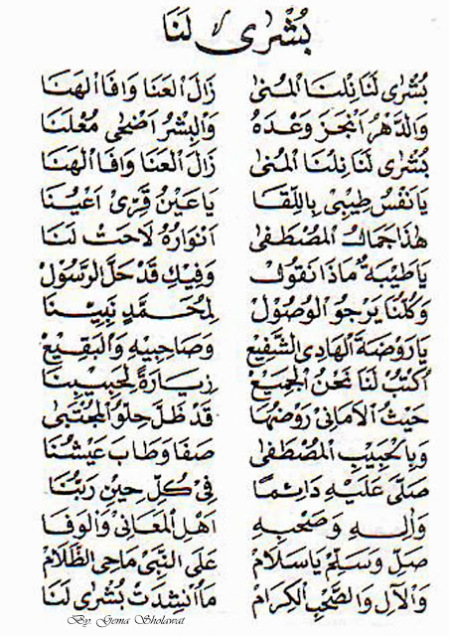 بُشْرٰى لَنَا
بُشْرٰى لَنَا نِلْنَا الْمُنٰى زَالَ الْعَنَا وَافَا الْهَنَا
وَالدَّهْرُ اَنْجَزَ وَعْدَهُ وَالْبِشْرُ اَضْحٰى مُعْلَنَا
بُشْرٰى لَنَا نِلْنَا الْمُنٰى زَالَ الْعَنَا وَافَا الْهَنَا
يَا نَفْسُ طِيْبِيْ بِاللِّقَا يَا عَيْنُ قَرِّيْ اَعْيُنَا
هٰذَا جَمَالُ الْمُصْطَفٰى اَنْوَارُهُ لَاحَتْ لَنَا
يَا طَيْبَةُ مَاذَا نَقُوْلُ وَفِيْكِ قَدْ حَلَّ الرَّسُوْلُ
وَكُلُّنَا يَرْجُو الْوُصُوْلْ لِمُحَمَّدٍ نَبِيِّنَا
يَا رَوْضَةَ الْهَادِى الشَّفِيْعِ وَصَاحِبَيْهِ وَالْبَقِيْعِ
اُكْتُبْ لَنَا نَحْنُ الْجَمِيْعْ زِيَارَةً لِحَبِيْبِنَا
حَيْثُ الْاَمَانِيْ رَوْضُهَا قَدْ ظَلَّ حِلْوُ الْمُجْتَبٰى
وَبِالْحَبِيْبِ الْمُصْطَفٰى صَفَا وَطَابَ عَيْشُنَا
صَلّٰى عَلَيْهِ دَائِمًا فِيْ كُلِّ حِيْنٍ رَبُّنَا
وَاٰلِهِ وَصَحْبِهِ اَهْلِ الْمَعَانِيْ وَالْوَفَا
صَلِّ وَسَلِّمْ يَا سَلَامْ عَلَى النَّبِيْ مَاحِى الظَّلَامْ
وَالْاٰلِ وَالصَّحْبِ الْكِرَامْ مَا اُنْشِدَتْ بُشْرٰى لَنَا
By. Gema Sholawat